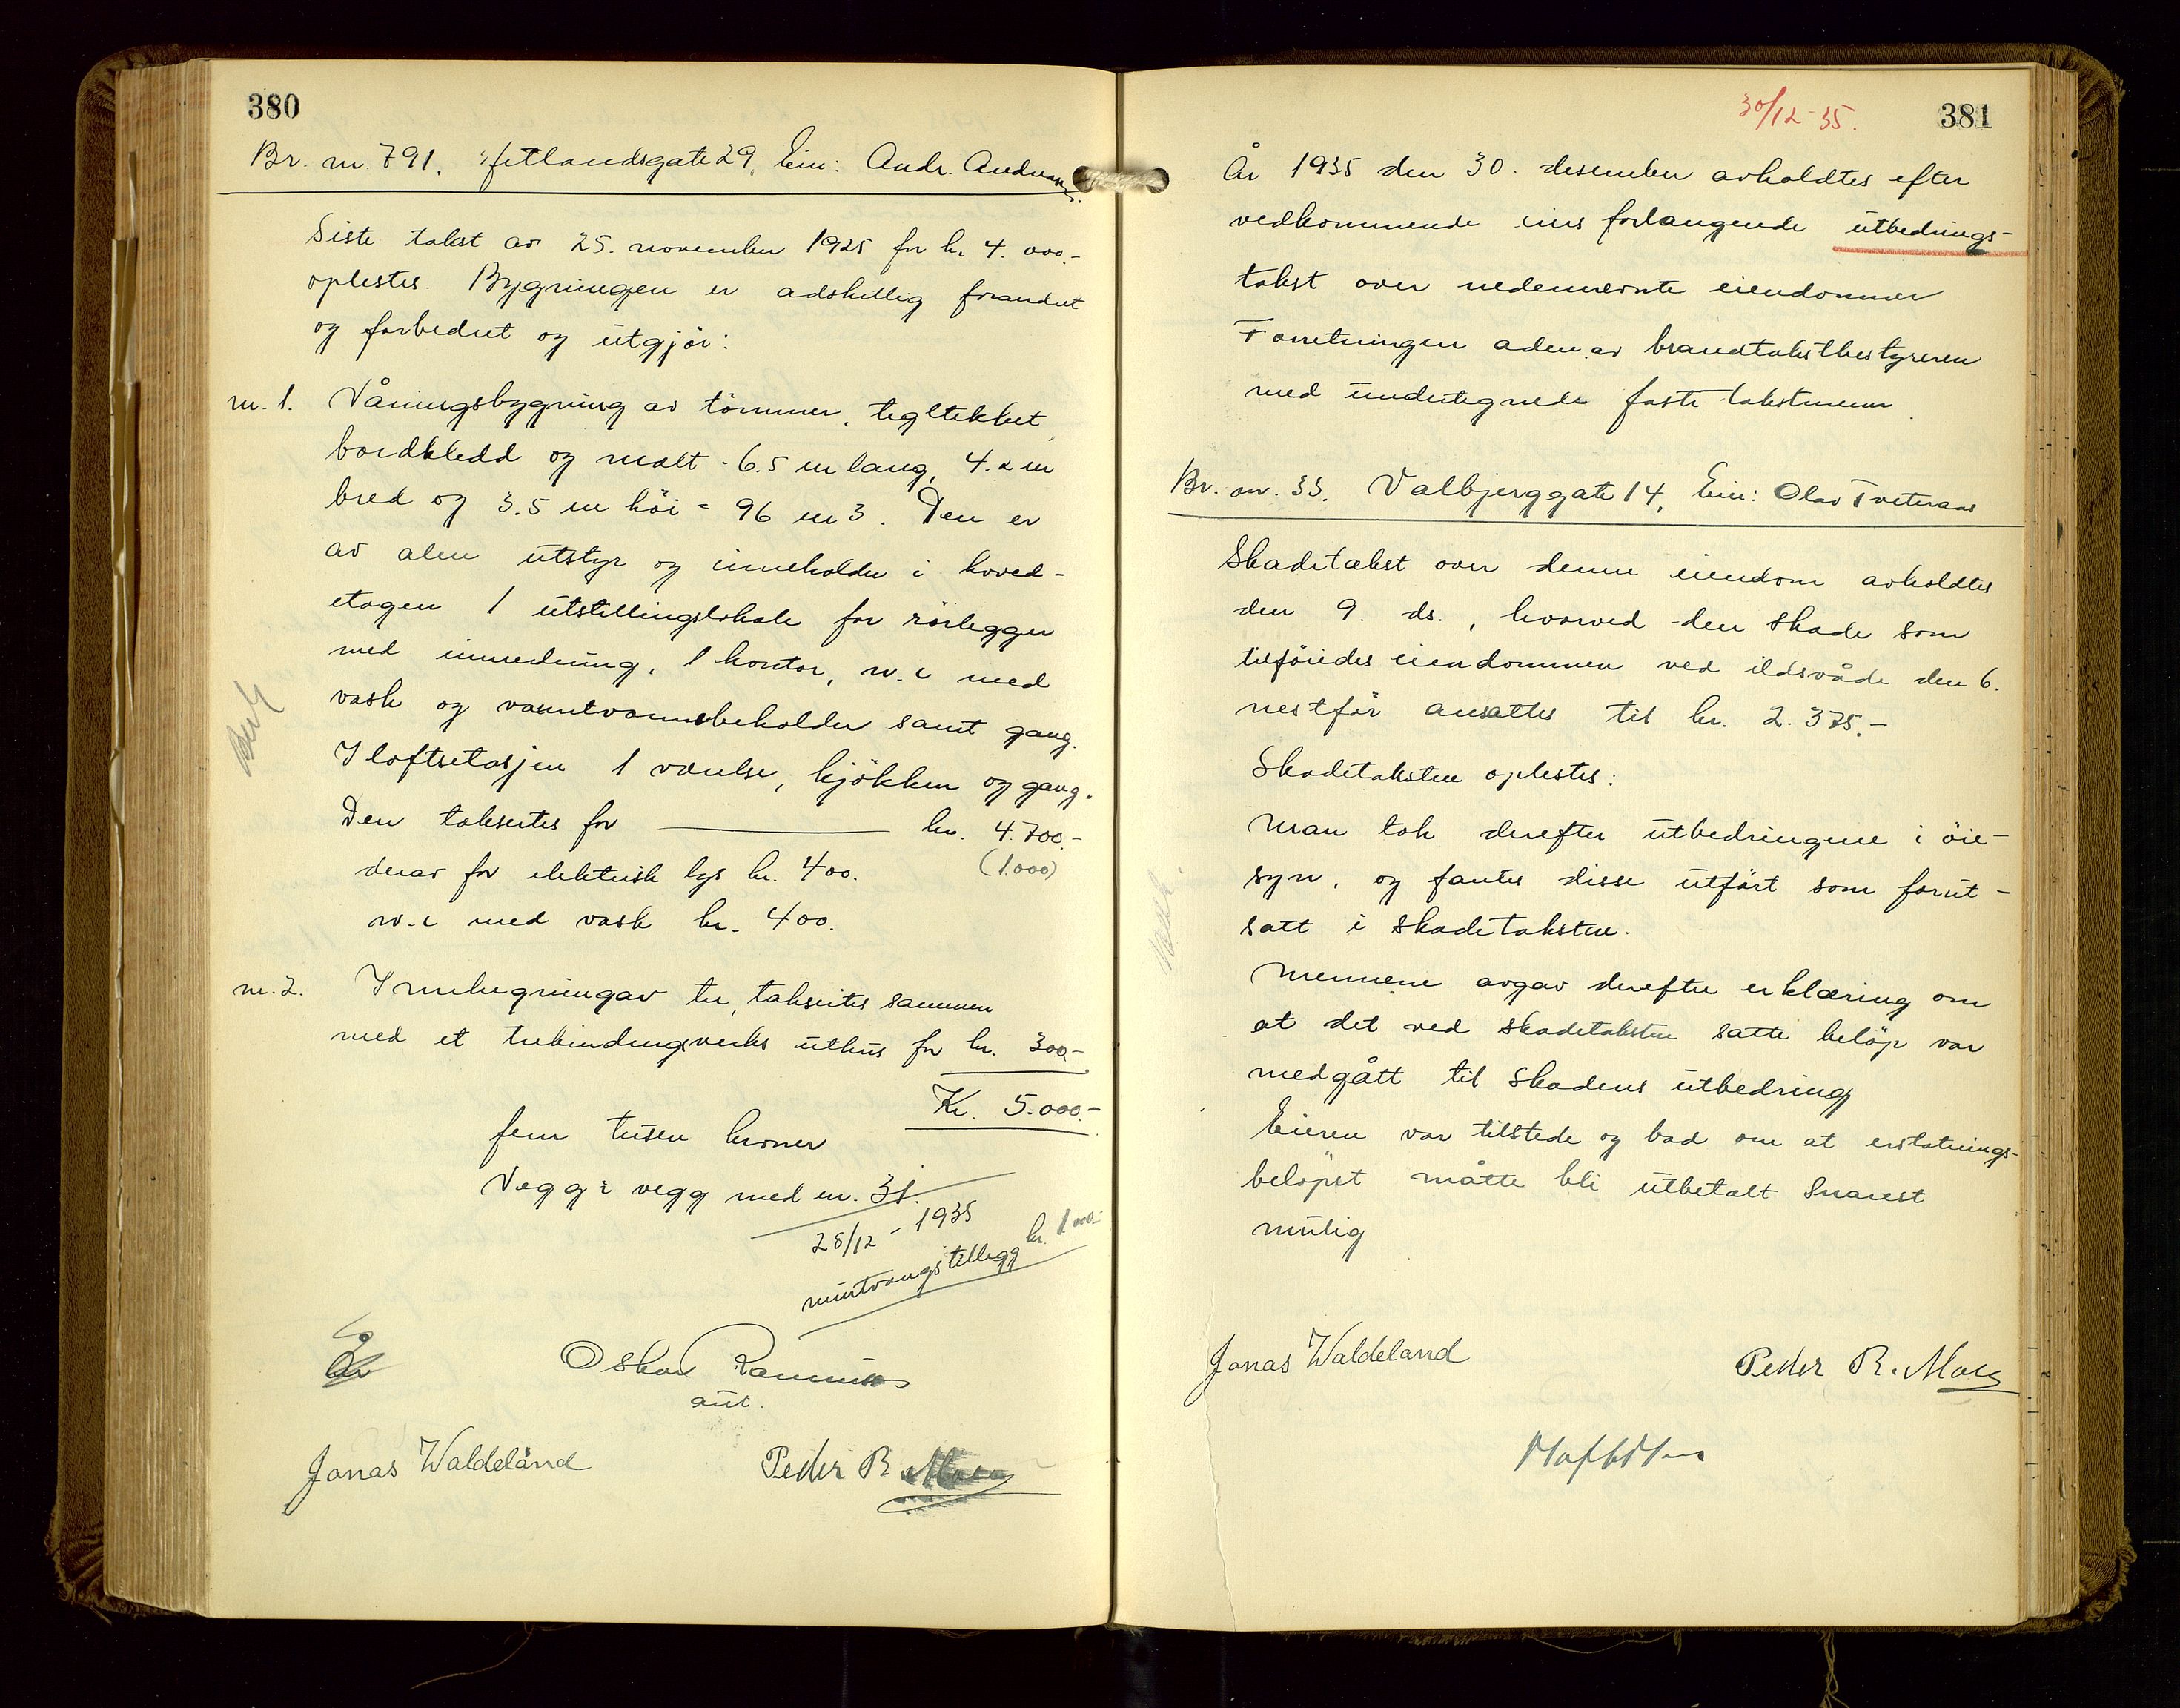 380
Br. nr. 791. Hetlandsgate 29, Eier: Andr. Andreassen.
Siste takst av 25. november 1925 for kr. 4.000.-
oplestes. Bygningen er adskillig forandret
og forbedret og utgjör:
nr. 1. Våningsbygning av tömmer, tegltekket,
bordkledd og malt - 6.5 m lang, 4.2 m
bred og 3.5 m höi = 96 m3. Den er
av alm utstyr og inneholder i hoved-
etagen 1 utstillingslokale for rörlegger
med innredning, 1 kontor, w.c med
vask og varmtvannsbeholder samt gang.
I loftsetasjen 1 værelse, kjökken og gang.
Den takseres for kr. 4.700.-
derav for elektrisk lys kr. 400. (1.000)
w.c med vask kr. 400.
nr. 2. Innhegning av tre, takseres sammen
med et trebindingsverks uthus for kr. 300.-
Kr. 5.000.-
fem tusen kroner
Vegg i vegg med nr. 31.
28/12 - 1935
murtvangstillegg kr. 1000.-
År
Oskar Rasmussen
ass.
Jonas Waldeland Peder B. Moen
30/12-35.
381
År 1935 den 30. desember avholdtes efter
vedkommende eiers forlangende utbedrings-
takst over nedennevnte eiendommer
Forretningen adm. av brandtakstbestyreren
med undertegnede faste takstmenn.
Br. nr. 33. Valbjerggate 14, Eier: Olav Tveteraas
Skadetakst over denne eiendom avholdtes
den 9. ds., hvorved den skade som
tilföiedes eiendommen ved ildsvåde den 6.
nestfør ansattes til kr. 2.375.-
Skadetaksten oplestes:
Man tok derefter utbedringene i öie-
syn, og fantes disse utført som forut-
satt i skadetaksten.
Mennene avgav derefter erklæring om
at det ved skadetaksten satte belöp var
medgått til skadens utbedring
Eieren var tilstede og bad om at erstatnings-
belöpet måtte bli utbetalt snarest
mulig
Jonas Waldeland Peder B. Moen